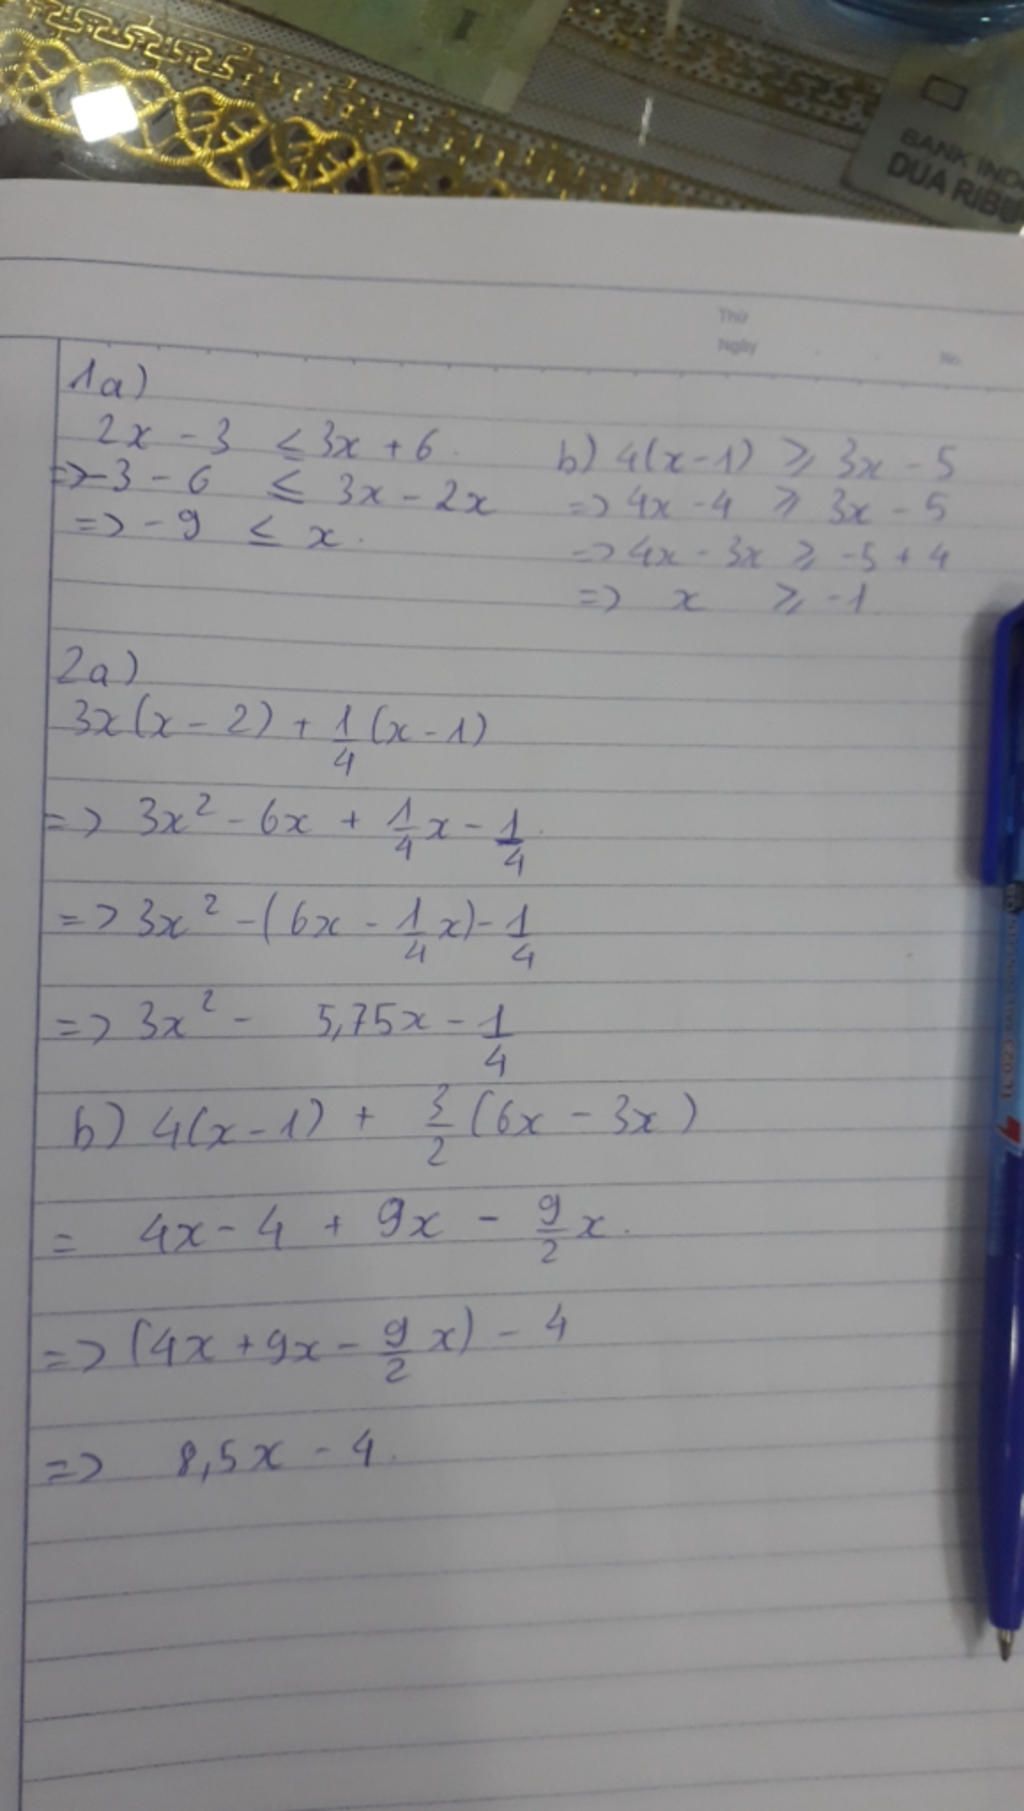 BANK IND
DUA RIBU
Thứ
Ngày
No.
1a)
2x - 3 ≤ 3x + 6.
=> -3 - 6 ≤ 3x - 2x
=> -9 ≤ x.
b) 4(x-1) ≥ 3x - 5
=> 4x - 4 ≥ 3x - 5
=> 4x - 3x ≥ -5 + 4
=> x ≥ -1
2a)
3x(x - 2) + 1/4 (x - 1)
=> 3x² - 6x + 1/4 x - 1/4
=> 3x² - (6x - 1/4 x) - 1/4
=> 3x² - 5,75x - 1/4
b) 4(x-1) + 3/2 (6x - 3x)
= 4x - 4 + 9x - 9/2 x.
=> (4x + 9x - 9/2 x) - 4
=> 8,5x - 4.